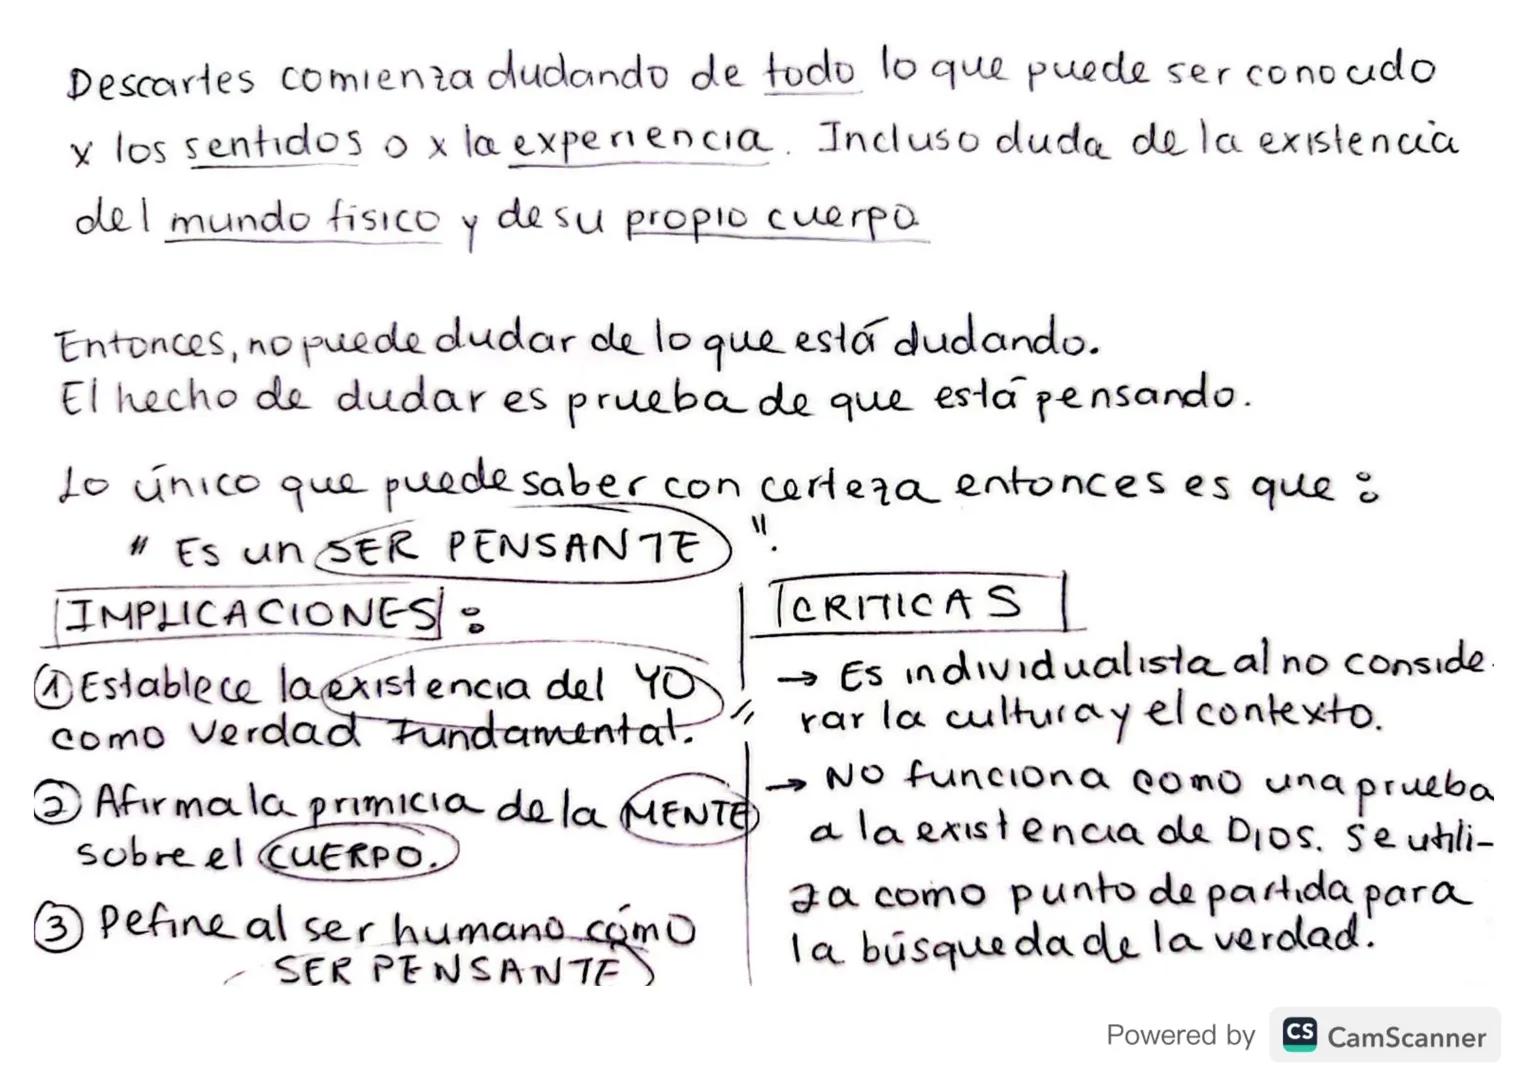 Descartes comienza dudando de todo lo que puede ser conocido
x los sentidos o x la experiencia. Incluso duda de la existencia
del mundo físico y de su propio cuerpo
Entonces, no puede dudar de lo que está dudando.
El hecho de dudar es prueba de que está pensando.
Lo único que puede saber con certeza entonces es que :
" Es un SER PENSANTE ".
IMPLICACIONES :
① Establece la existencia del YO
como verdad fundamental.
② Afirma la primicia de la MENTE
sobre el CUERPO.
③ Define al ser humano como
SER PENSANTE
CRITICAS
→ Es individualista al no conside-
rar la cultura y el contexto.
→ No funciona como una prueba
a la existencia de Dios. Se utili-
za como punto de partida para
la búsqueda de la verdad.
Powered by CS CamScanner